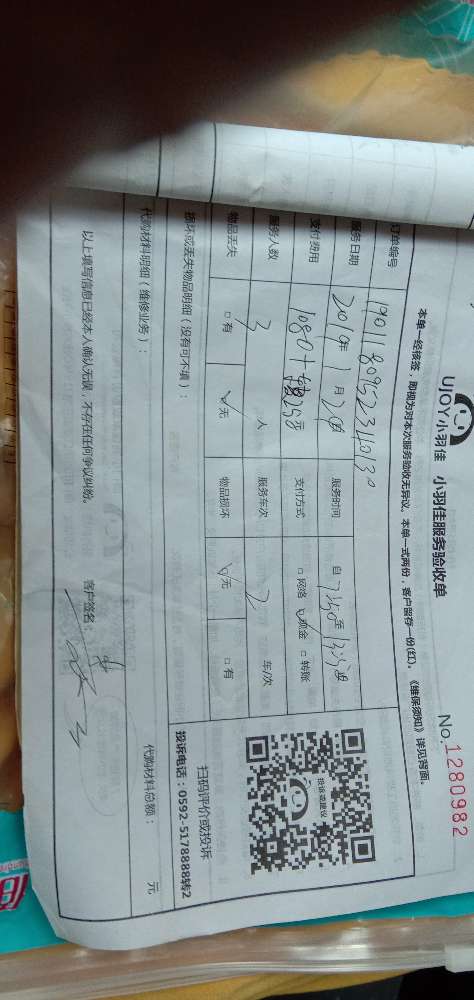 UJOY小羽佳 小羽佳服务验收单
No.1280982
本单一经核签，即视为对本次服务验收无异议。本单一式两份，客户留存一份(红)。《维保须知》详见背面。
订单编号
服务日期 2019年1月 服务时间 自 至
支付费用 1080+ 元 支付方式 □网络 现金 □转账
服务人数 3 人 服务车次 2 车/次
物品丢失 □有 无 物品损坏 无 □有
损坏或丢失物品明细（没有可不填）：
代购材料明细（维修业务）： 代购材料总额： 元
以上填写信息已经本人确认无误，不存在任何争议纠纷。 客户签名：
投诉或建议
扫码评价或投诉
投诉电话：0592-5178888转2